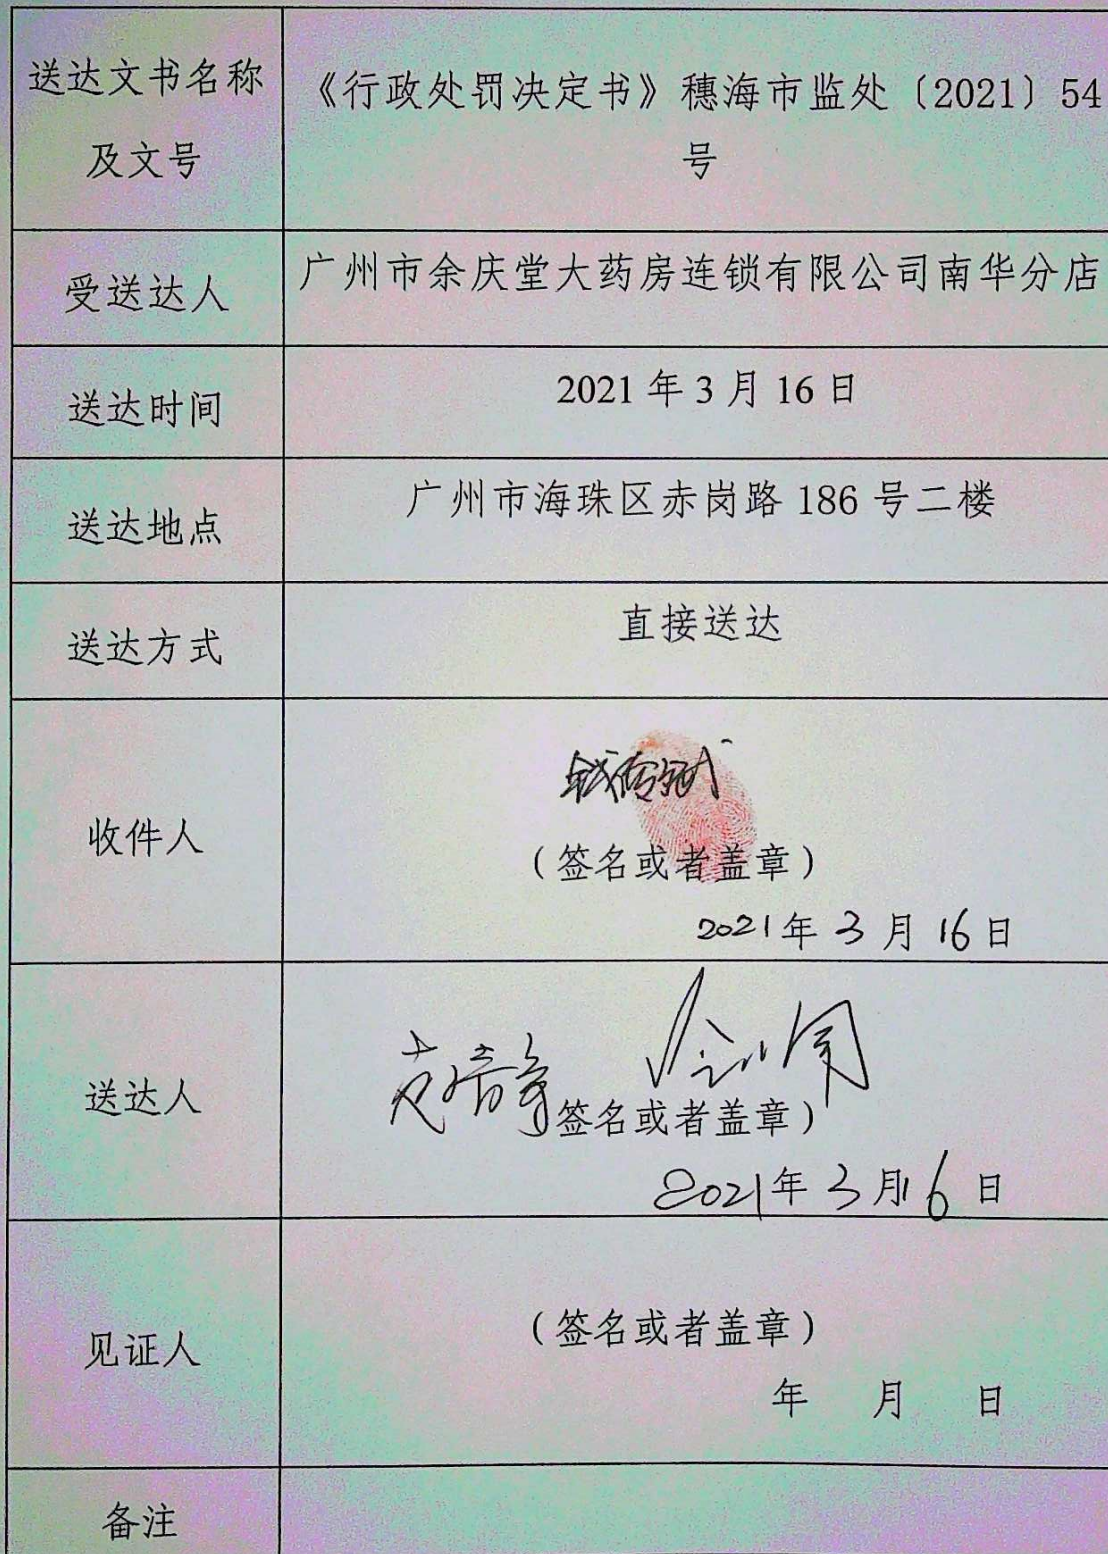 送达文书名称
及文号
《行政处罚决定书》穗海市监处〔2021〕54
号
受送达人
广州市余庆堂大药房连锁有限公司南华分店
送达时间
2021 年 3 月 16 日
送达地点
广州市海珠区赤岗路 186 号二楼
送达方式
直接送达
收件人
（签名或者盖章）
2021年 3 月 16 日
送达人
签名或者盖章）
2021年 3 月16 日
见证人
（签名或者盖章）
年 月 日
备注